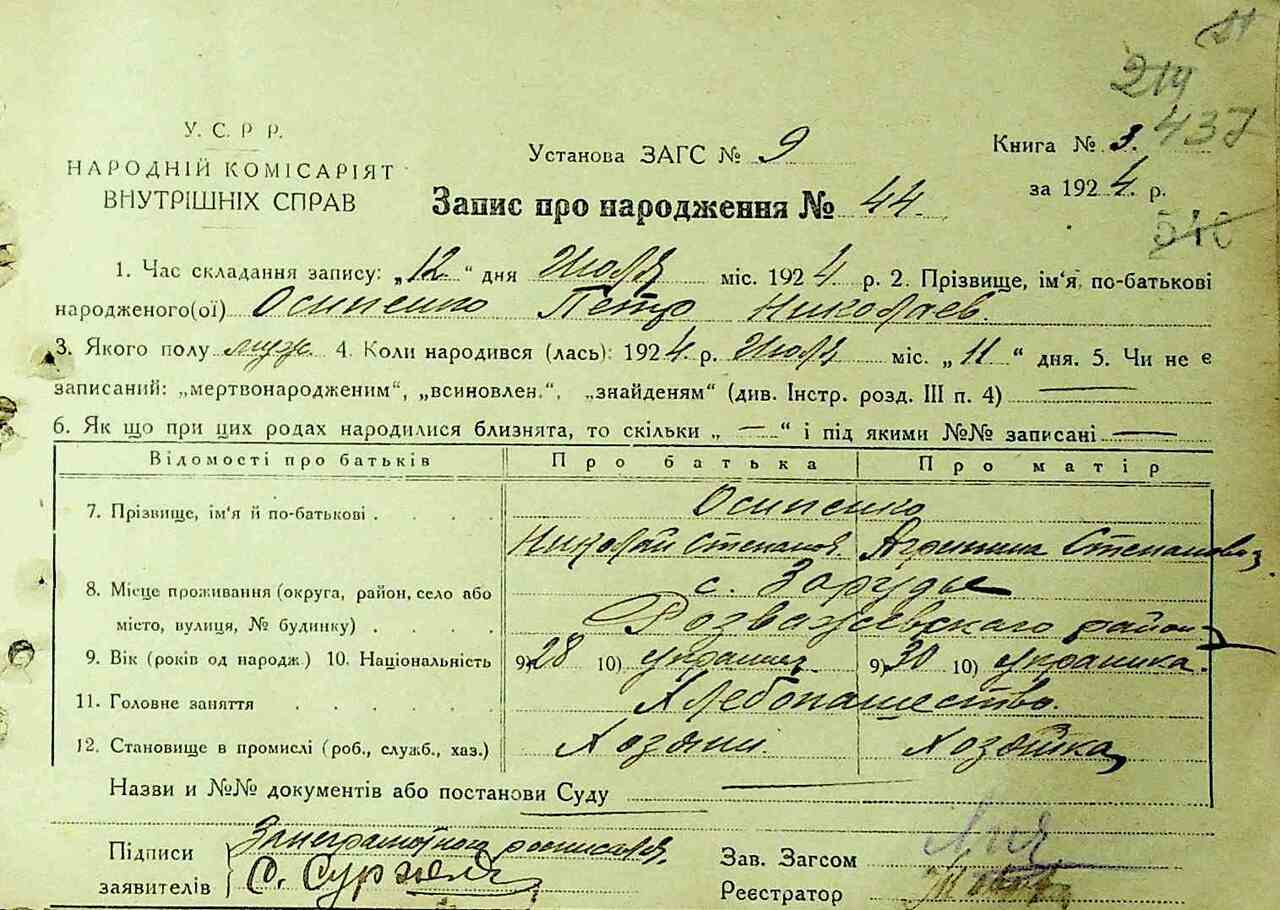 219
437
У. С. Р Р.
НАРОДНІЙ КОМІСАРІЯТ
ВНУТРІШНІХ СПРАВ
Установа ЗАГС № 9
Книга № 3.
за 1924 р.
Запис про народження № 44.
540
1. Час складання запису: „12“ дня Июля міс. 1924 р. 2. Прізвище, ім'я, по-батькові
народженого(ої) Осипенко Петр Николаев.
3. Якого полу муж. 4. Коли народився (лась): 1924 р. Июля міс. „11“ дня. 5. Чи не є
записаний: „мертвонародженим“, „всиновлен.“, „знайденям“ (див. Інстр. розд. III п. 4) —
6. Як що при цих родах народилися близнята, то скільки „—“ і під якими №№ записані —
Відомості про батьків Про батька Про матір
7. Прізвище, ім'я й по-батькові . . . . Осипенко
Николай Степанов. Агрипина Степановна
8. Місце проживання (округа, район, село або с. Заруды
місто, вулиця, № будинку) . . . . Розважевского района
9. Вік (років од народж.) 10. Національність 9) 28 10) украинец 9) 30 10) украинка.
11. Головне заняття . . . . . Хлебопашество.
12. Становище в промислі (роб., служб., хаз.) Хозяин. Хозяйка
Назви и №№ документів або постанови Суду —
Підписи За неграмотного росписался
заявителів С.
Зав. Загсом
Реєстратор